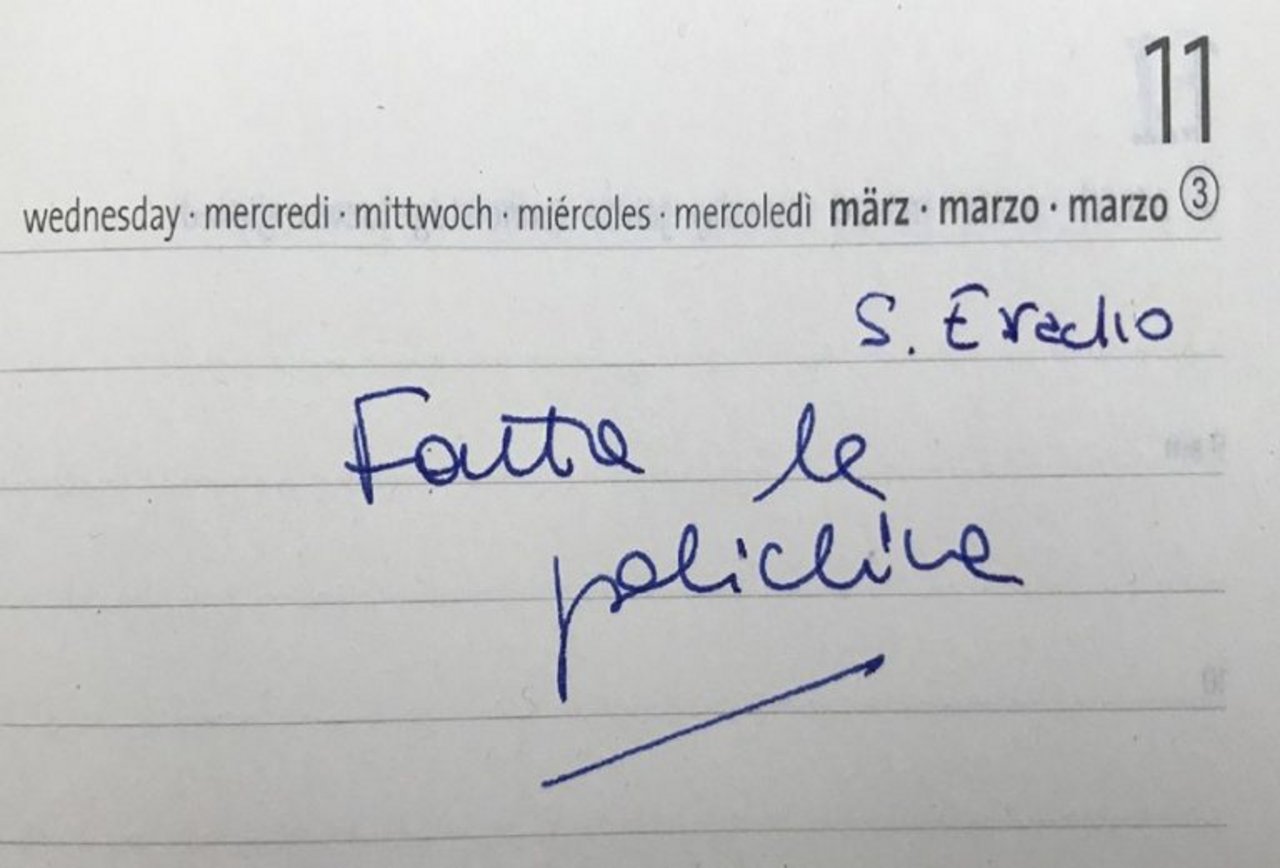 11
wednesday · mercredi · mittwoch · miércoles · mercoledì märz · marzo · marzo ③
S. Eraclio
Fatta la
policlina